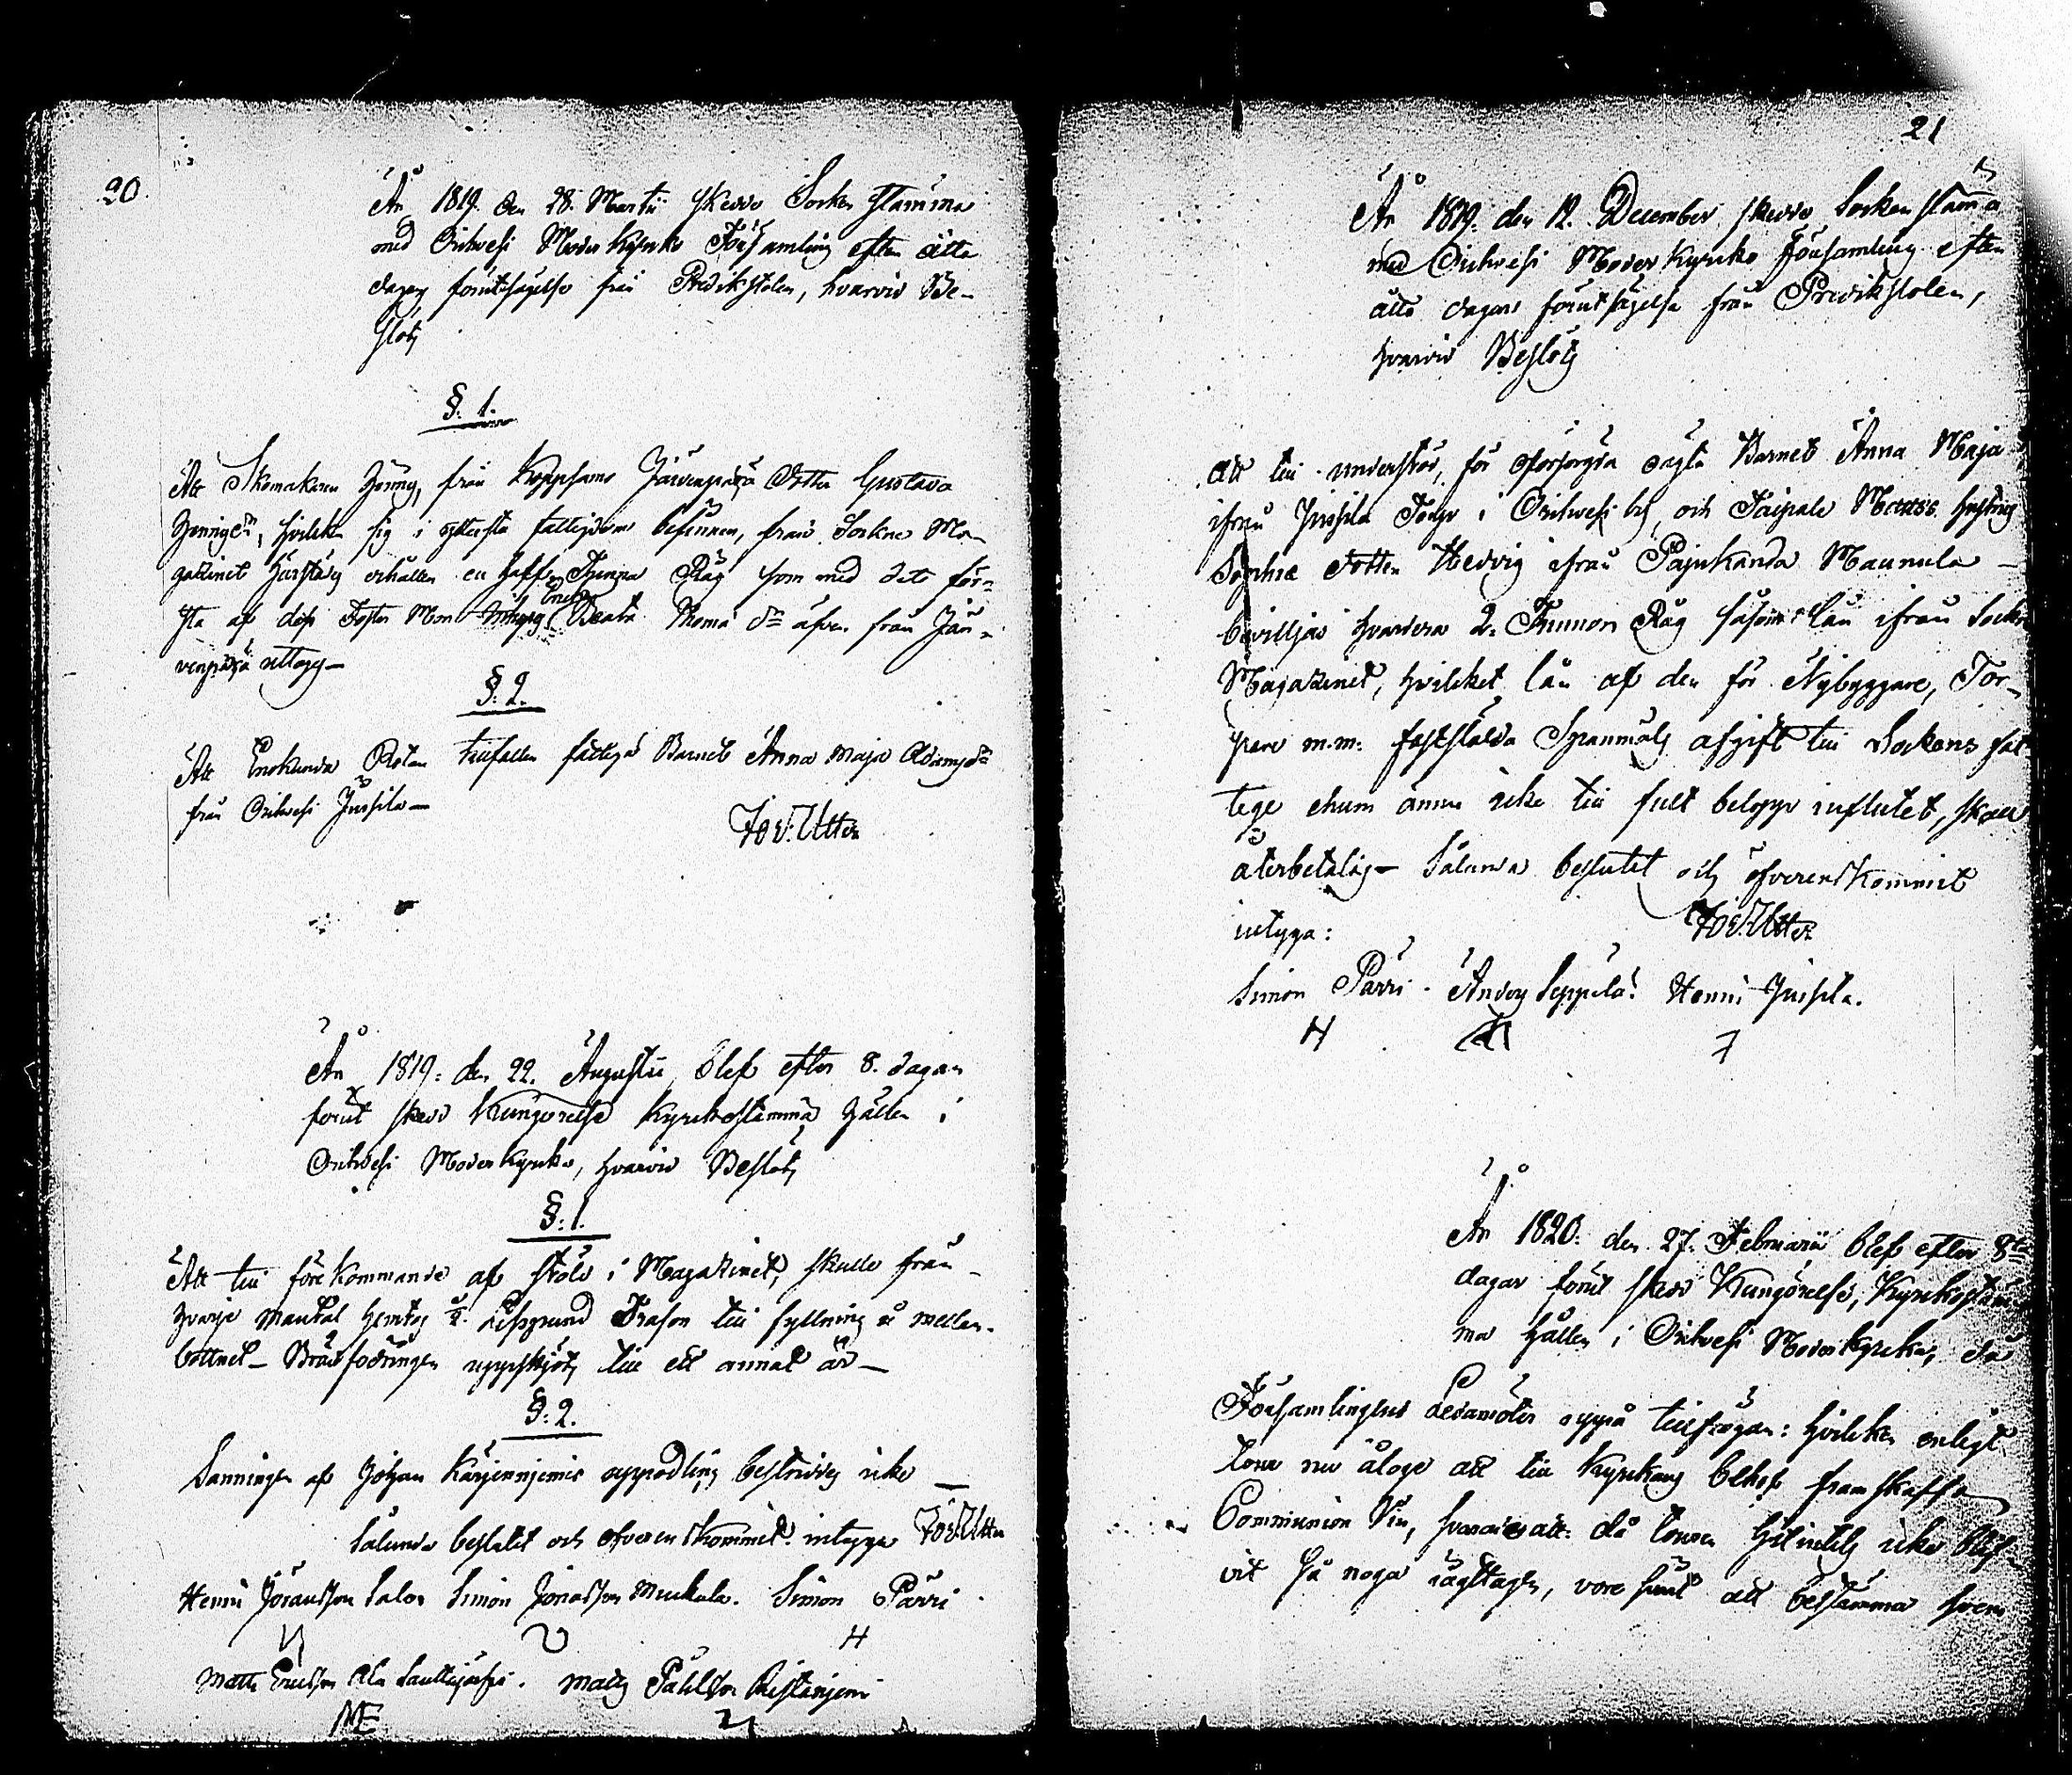 20.
År 1819. den 28. Martii skedde Sockenstämma
med Orihvesi Moder Kyrko Församling efter åtta
dagars förutsägelse från Predikstolen, hvarvid Be-
slöts
§. 1.
Att Skomakaren Hönig, från Koppsamo Järvenpää Dotter Gustava
Hönigsdr, hvilken sig i yttersta fattigdom befinner, från Sockne Ma-
gazinet härstädes erhåller en half Tunna Råg som med det för-
sta af dess Foster Mor Enkan Beata Thomædr äfven från Jär-
venpää uttages
§. 2.
Att Enokunda Roten tillfaller fattiga Barnet Anna Maja Adamsdr
från Orihvesi Jussila
Joh. Utter
År 1819: den 22. Augustii, blef efter 8. dagars
förut skedd Kungörelse Kyrkostämma hållen i
Orihvesi Moder Kyrka, hvarvid Beslöts
§. 1.
Att till förekommande af stöld i Magazinet, skulle från
hvarje Mantal hemtas ½. Lispund Drafson till fyllning å mellan-
bottnet – Brädfodringen uppskjöts till ett annat år –
§: 2.
Sanningen af Johan Karjenniemis uppodling bestriddes icke –
Sålunda beslutit och öfverenskommit intyga Joh. Utter
Henric Jöransson Salo Simon Jöransson Muckula. Simon Pärri
H
Matts Ericsson Ala Lauttajärvi. Mats Påhlsson Ristaniemi
ME
21
År 1819: den 12. December skedde Sockenstäma
med Orihvesi Moder Kyrko Församling efter
åtta dagars förutsägelse från Predikstolen,
hvarvid Beslöts
att till underhåll, för oförsörgda oägta Barnet Anna Maja
ifrån Jussila Torp i Orihvesi by, och Taipale
Sophie dotter Hedvig ifrån Pajukanda Maunula –
beviljas hvardera 2. Tunnor Råg såsom lån ifrån Sockne
Magazinet, hvilket lån af den för Nybyggare, Tor-
pare m.m: fastställda Spanmåls afgift till Sockens fat
tige ehuru ännu icke till fullt belopp influtet, skall
återbetalas – Sålunda beslutit och öfverenskommit
intyga: Joh. Utter
Simon Pärri. Anders Seppälä. Henric Jussila.
H
År 1820: den 27. Februarii blef efter 8ta
dagar förut skedd Kungörelse, Kyrkostäm-
ma hållen i Orihvesi Moderkyrka, då
Församlingens Ledamöter uppå tillfrågan: hvilken enligt
tour nu ålåge att till Kyrkans behof framskaffa
Communion Vin, svarades att: då touren hitintils icke blif-
vit så noga iagttagen, vore svårt att bestämma hvem